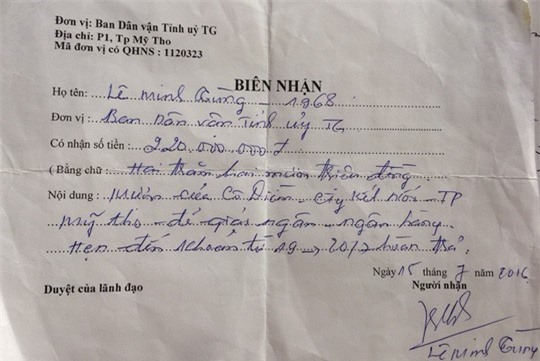 Đơn vị: Ban Dân vận Tỉnh uỷ TG
Địa chỉ: P1, Tp Mỹ Tho
Mã đơn vị có QHNS : 1120323
BIÊN NHẬN
Họ tên: Lê Minh Tùng - 1968
Đơn vị: Ban Dân vận Tỉnh ủy TG
Có nhận số tiền: 220.000.000 đ
( Bằng chữ: Hai trăm hai mươi triệu đồng
Nội dung : Mượn của Cô Diễm Kết nối TP
Mỹ Tho để giải ngân ngân hàng
Hẹn đến khoảng từ 19 → 20/7 hoàn trả.
Ngày 15 tháng 7 năm 2016
Duyệt của lãnh đạo
Người nhận
Lê Minh Tùng